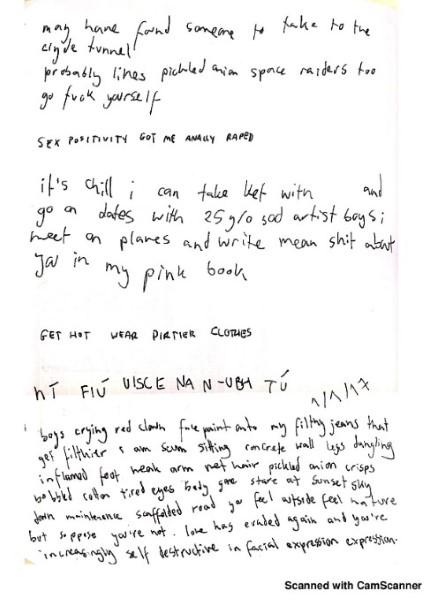 may have found someone to take to the
clyde tunnel
probably likes pickled onion space raiders too
go fuck yourself
SEX POSITIVITY GOT ME ANALLY RAPED
it's chill i can take ket with and
go on dates with 25 y/o sad artist boys i
meet on planes and write mean shit about
you in my pink book
GET HOT WEAR DIRTIER CLOTHES
NÍ FIÚ UISCE NA N-UBH TÚ
1/1/17
boys crying red clown face paint onto my filthy jeans that
get filthier i am scum sitting concrete wall legs dangling
inflamed foot weak arm wet hair pickled onion crisps
bobbled cotton tired eyes body gone stare at sunset sky
down maintenance scaffolded road you feel outside feel nature
but suppose you're not. love has eroded again and you're
increasingly self destructive in facial expression expression.
Scanned with CamScanner